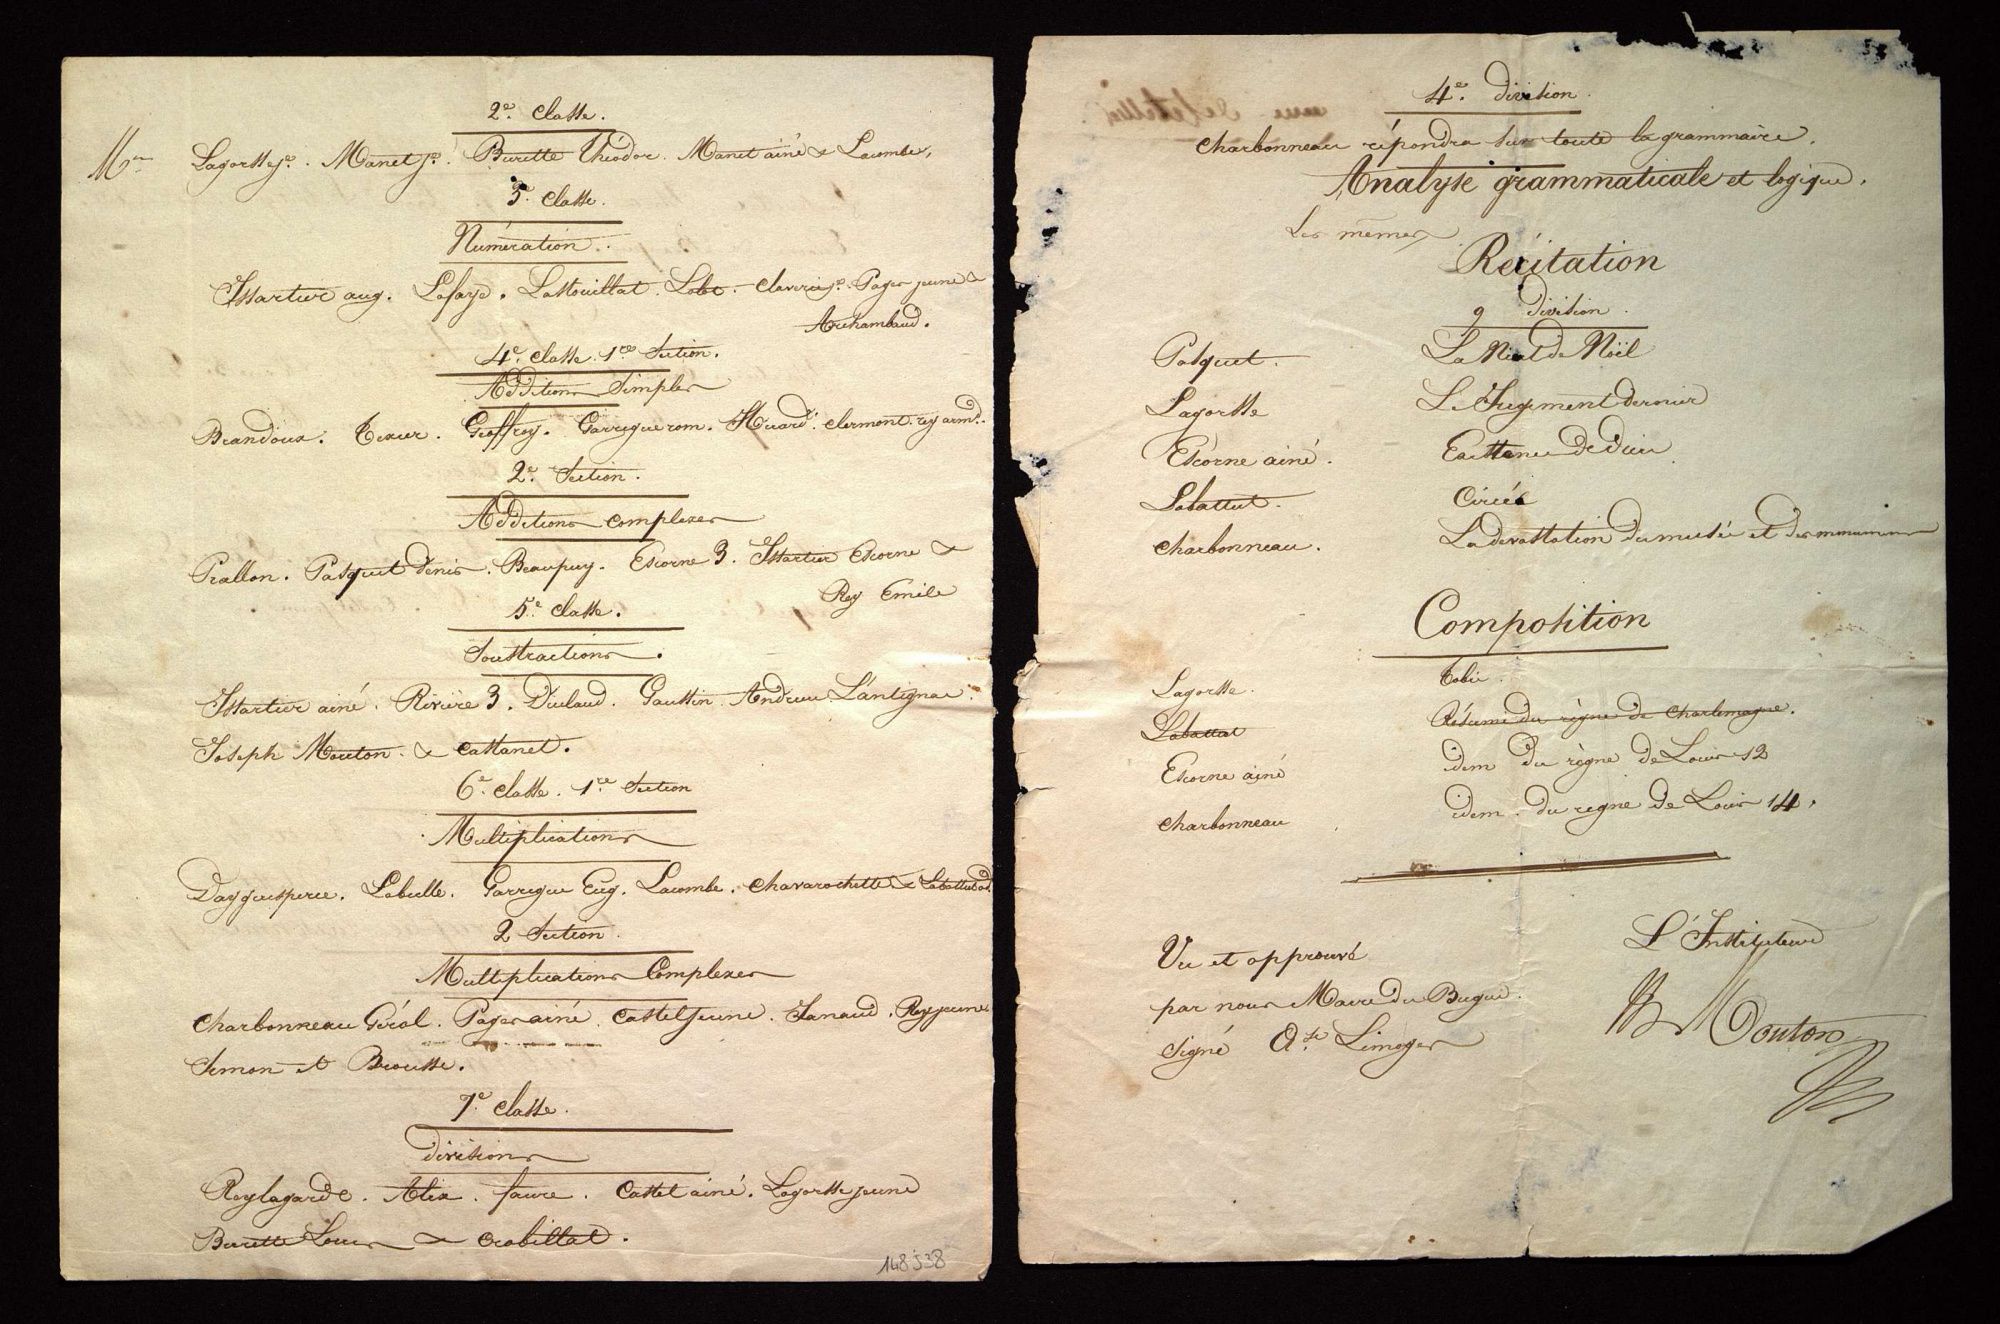 2e. Classe.
Mrs Lagorsse je. Manet je. Burette Théodor. Manet ainé & Lacombe,
3e. Classe.
Numération.
Issartier aug. Lafaye. Lassouillat. Claverie je. Pages jeune &
Archambaud.
4e. Classe. 1re Section.
Additions Simples
Beandoux. Texier. Geoffroy. Garrigue rom. Huard. Clermont. rey arm.
2e. Section.
Additions complexes
Grallon. Pasquet Dénis. Beaupuy. Escorne 3. Issartier Escorne &
Rey Emile
5e. Classe.
Soustractions.
Issartier ainé. Rivière 3. Diulaud. Gaussin. Andrieu Lantignac.
Joseph Mouton. & Cassanet.
6e. Classe. 1re Section
Multiplications
Labeille. Garrigue Eug. Lacombe. Chavarochette &
2 Section.
Multiplications Complexes
Charbonneau Géral. Pages ainé. Castel jeune. Janaud. Rey jeune.
Simon et Brousse.
7e. Classe.
divisions
Reylagarde. Alix. faure. Castel ainé. Lagorsse jeune
Burette Louis & Crabillat.
148 J 38
4e. division.
Charbonneau répondra sur toute la grammaire.
Analyse grammaticale et logique.
Les mêmes
Récitation
division.
Pasquet. La Nuit de Noël
Lagorsse Le Jugement dernier
Escorne ainé. Existence de Dieu
Labattut. Circée
Charbonneau. La dévastation du musée et des monumens
Composition
Lagorsse. Tobie.
Labattut Résumé du règne de Charlemagne.
Escorne ainé idem du règne de Louis 12
Charbonneau idem. du règne de Louis 14.
Vu et approuvé L'Instituteur
par nous Maire du Bugue. Mouton
Signé Limoges